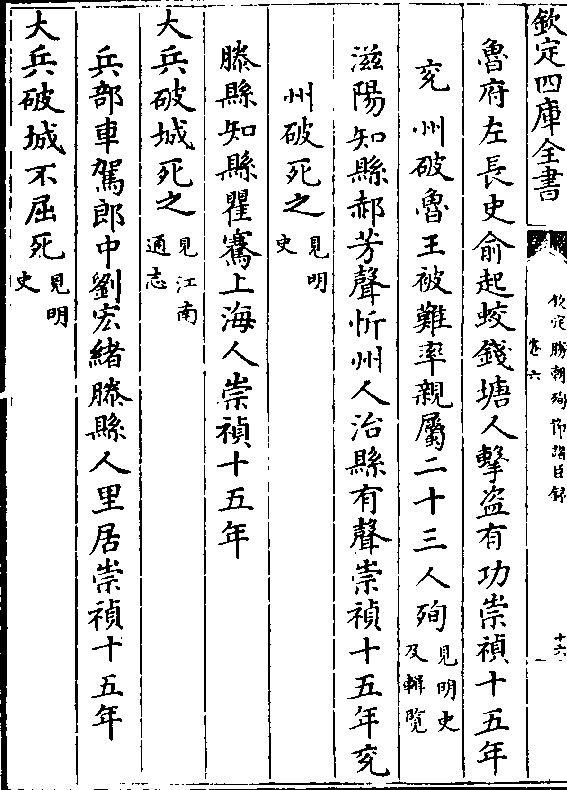 欽定四庫全書
欽定勝朝殉節諸臣錄
卷六
十六
魯府左長史俞起蛟錢塘人擊盜有功崇禎十五年
兗州破魯王被難率親屬二十三人殉見明史
及輯覽
滋陽知縣郝芳聲忻州人治縣有聲崇禎十五年兗
州破死之見明
史
滕縣知縣瞿騫上海人崇禎十五年
大兵破城死之見江南
通志
兵部車駕郎中劉宏緒滕縣人里居崇禎十五年
大兵破城不屈死見明
史